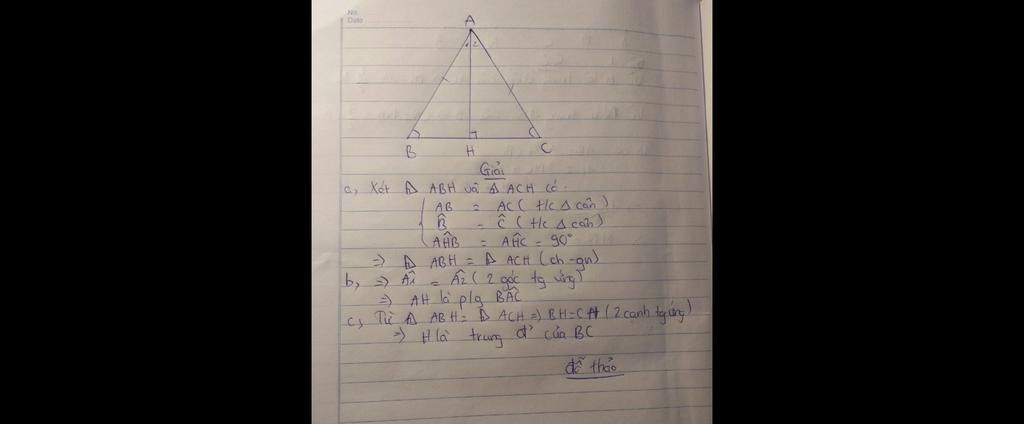 No.
Date
A
1 2
B H C
Giải
a, Xét Δ ABH và Δ ACH có:
AB = AC ( t/c Δ cân )
B̂ = Ĉ ( t/c Δ cân )
AĤB = AĤC = 90°
=> Δ ABH = Δ ACH (ch - gn)
b, => Â1 = Â2 ( 2 góc tg ứng)
=> AH là p/g BÂC
c, Từ Δ ABH = Δ ACH => BH = CH ( 2 cạnh tg ứng)
=> H là trung đ' của BC
đỗ thảo